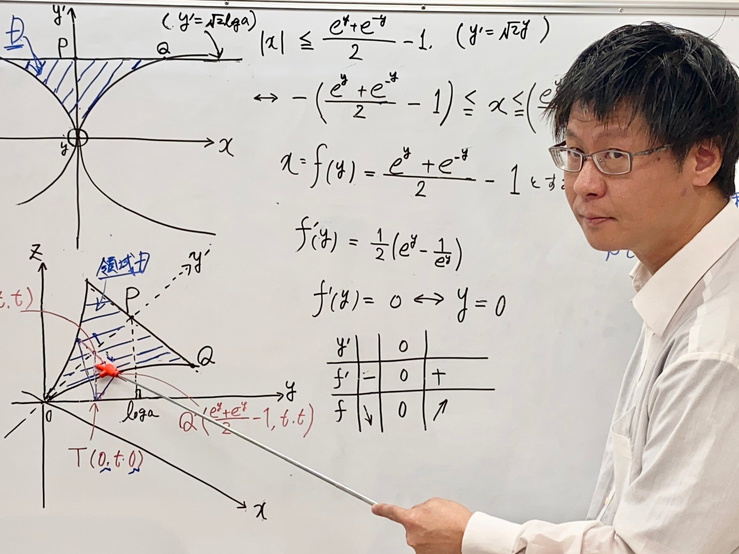 y'
(y'=√2 log a)
D
P
Q
y
x
|x| ≦ (e^y+e^-y)/2 - 1. (y'=√2y)
↔ -((e^y+e^-y)/2 - 1) ≦ x ≦ (e^y
x=f(y) = (e^y+e^-y)/2 - 1 とす
f'(y) = 1/2(e^y - 1/e^y)
f'(y) = 0 ↔ y = 0
y' 0
f' - 0 +
f ↘ 0 ↗
z
領域D
y'
t.t)
P
Q
y
0
log a
Q'((e^y+e^y)/2 -1, t.t)
T(0,t.0)
x